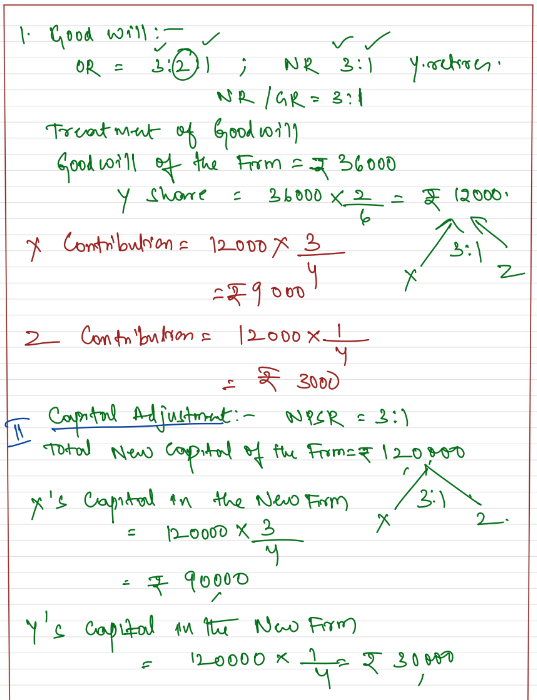 1. Good will :-
OR = 3:2:1 ; NR 3:1 Y. retires.
NR / GR = 3:1
Treatment of Goodwill
Goodwill of the Firm = ₹ 36000
Y Share = 36000 × 2/6 = ₹ 12000.
3:1
X Z
X Contribution = 12000 × 3/4
= ₹ 9000
Z Contribution = 12000 × 1/4
= ₹ 3000
II Capital Adjustment :- NPSR = 3:1
Total New Capital of the Firm = ₹ 120,000
3:1
X Z.
X's Capital in the New Firm
= 120000 × 3/4
= ₹ 90000
Y's Capital in the New Firm
= 120000 × 1/4 = ₹ 30,000